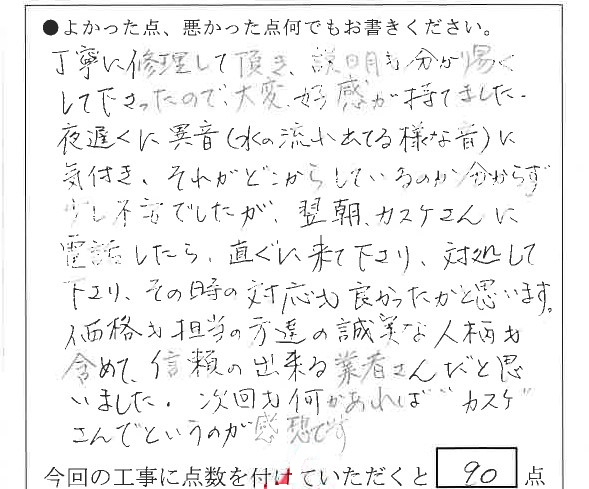 ●よかった点、悪かった点何でもお書きください。
丁寧に修理して頂き、説明も分かり易く
して下さったので、大変、好感が持てました。
夜遅くに異音(水の流れ出てる様な音)に
気付き、それがどこからしているのか分からず
少し不安でしたが、翌朝、カスケさんに
電話したら、直ぐに来て下さり、対処して
下さり、その時の対応も良かったかと思います。
価格も担当の方達の誠実な人柄も
含めて、信頼の出来る業者さんだと思
いました。次回も何かあれば"カスケ"
さんでというのが感想です
今回の工事に点数を付けていただくと 90 点